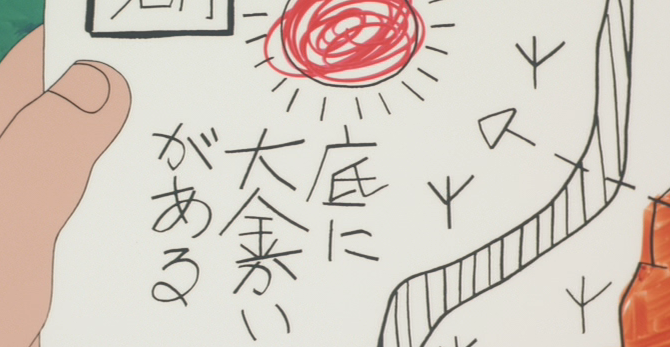 底に
大金かい
がある